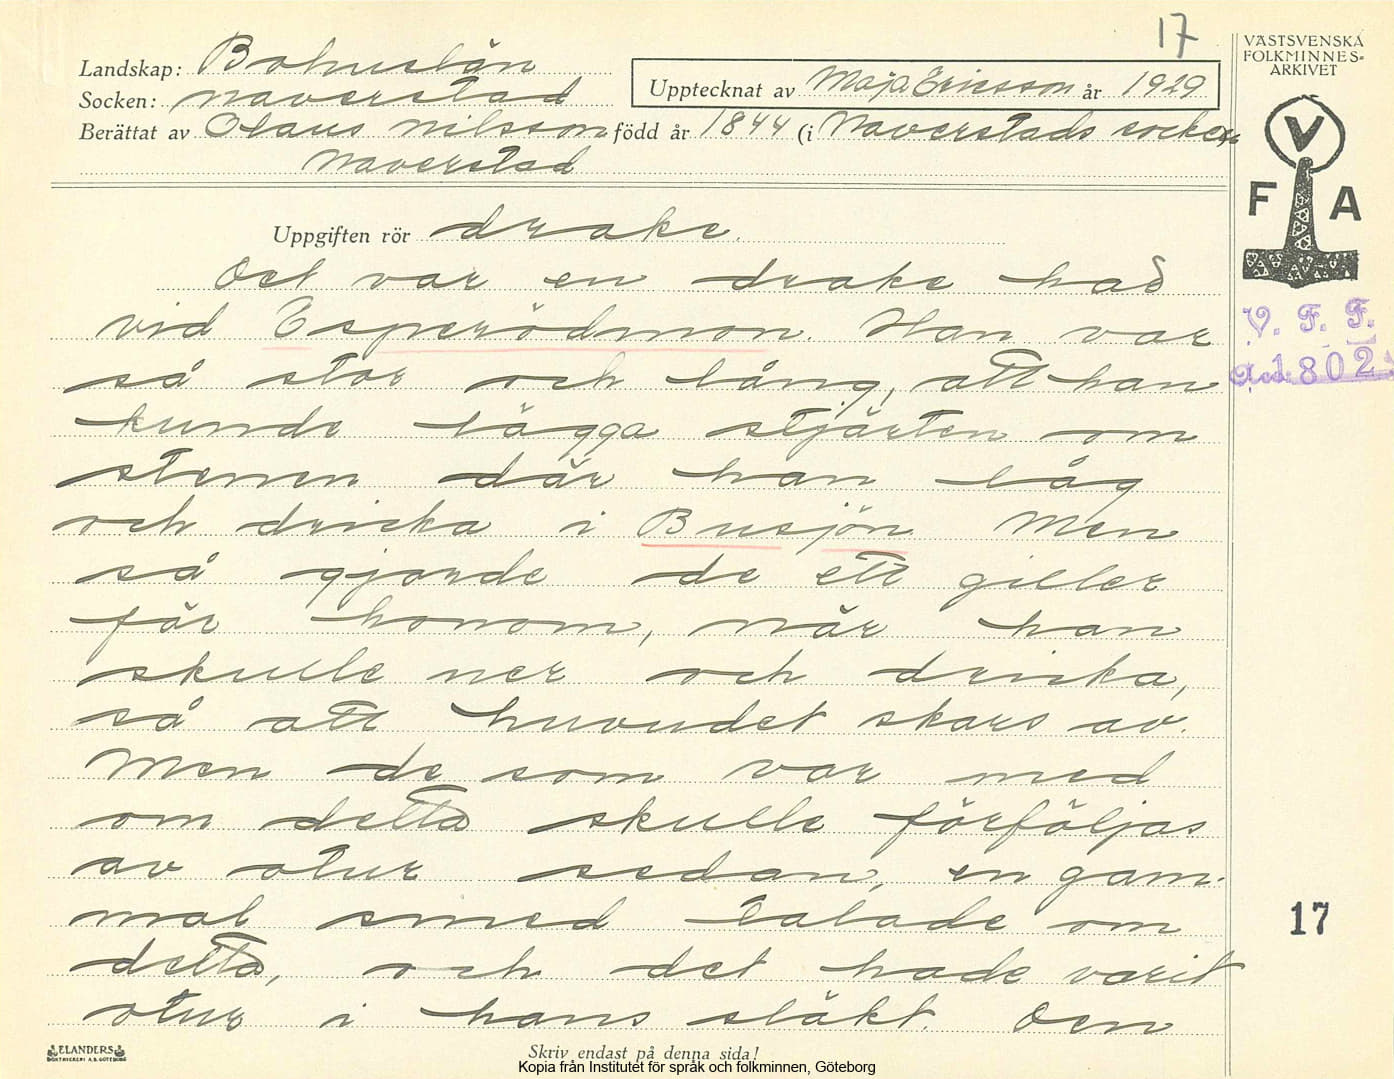 17
VÄSTSVENSKA
FOLKMINNES-
ARKIVET
Landskap: Bohuslän
Socken: Naverstad
Upptecknat av Maja Ericsson år 1929
Berättat av Olaus Nilsson född år 1844 (i Naverstads socken
Naverstad
V
F A
Uppgiften rör drake.
Det var en drake had
vid Esperödmon. Han var
så stor och lång, att han
kunde lägga stjärten om
stenen där han låg
och dricka i Busjön. Men
så gjorde de ett giller
för honom, när han
skulle ner och dricka,
så att huvudet skars av.
Men de som var med
om detta skulle förföljas
av otur sedan, en gam-
mal smed talade om
detta, och det hade varit
otur i hans släkt. Den
V. F. F.
Acc: 1802
17
ELANDERS
BOKTRYCKERI A.B. GÖTEBORG
Skriv endast på denna sida!
Kopia från Institutet för språk och folkminnen, Göteborg